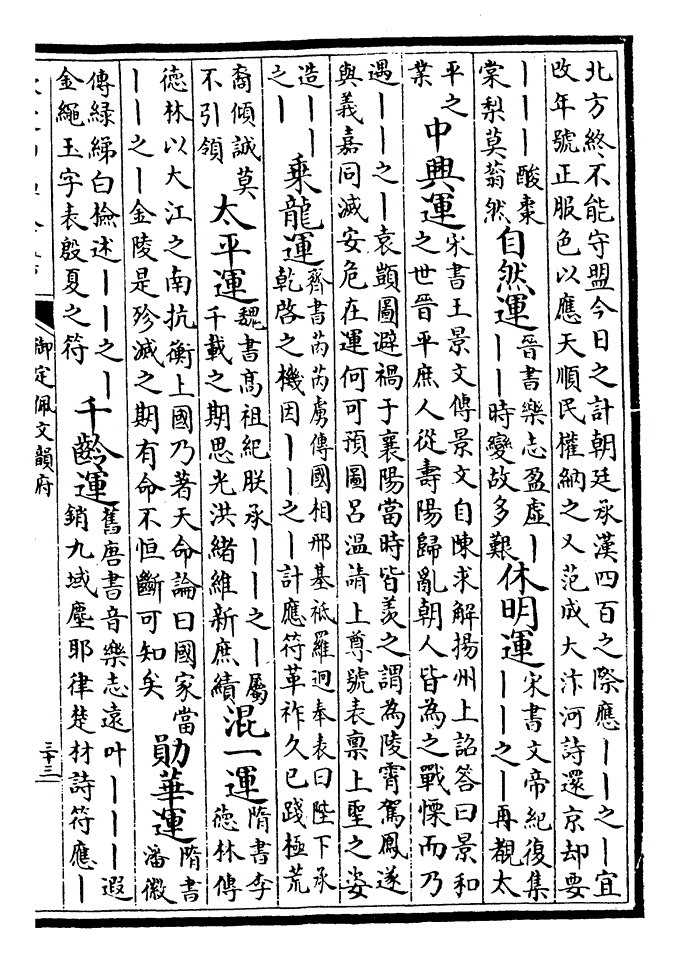 北方終不能守盟今日之計朝廷承漢四百之際應｜｜之｜宜
改年號正服色以應天順民權納之又范成大汴河詩還京却要
｜｜｜酸棗
棠梨莫蓊然
自然運
晉書樂志盈虛｜
｜｜時變故多艱
休明運
宋書文帝紀復集
｜｜之｜再覩太
平之
業
中興運
宋書王景文傳景文自陳求解揚州上詔答曰景和
之世晉平庶人從壽陽歸亂朝人皆為之戰慄而乃
遇｜｜之｜袁顗圖避禍于襄陽當時皆羨之謂為陵霄駕鳳遂
與義嘉同滅安危在運何可預圖呂温請上尊號表禀上聖之姿
造｜｜
之｜
乗龍運
齊書芮芮虜傳國相邢基祗羅迴奉表曰陛下承
乾啓之機因｜｜之｜計應符革祚久已踐極荒
裔傾誠莫
不引領
太平運
魏書高祖紀朕承｜｜之｜屬
千載之期思光洪緒維新庶績
混一運
隋書李
德林傳
德林以大江之南抗衡上國乃著天命論曰國家當
｜｜之｜金陵是殄滅之期有命不恒斷可知矣
勛華運
隋書
潘徽
傳綠綈白檢述｜｜之｜
金繩玉字表殷夏之符
千齡運
舊唐書音樂志遠叶｜｜｜遐
銷九域塵耶律楚材詩符應｜
御定佩文韻府
三十三